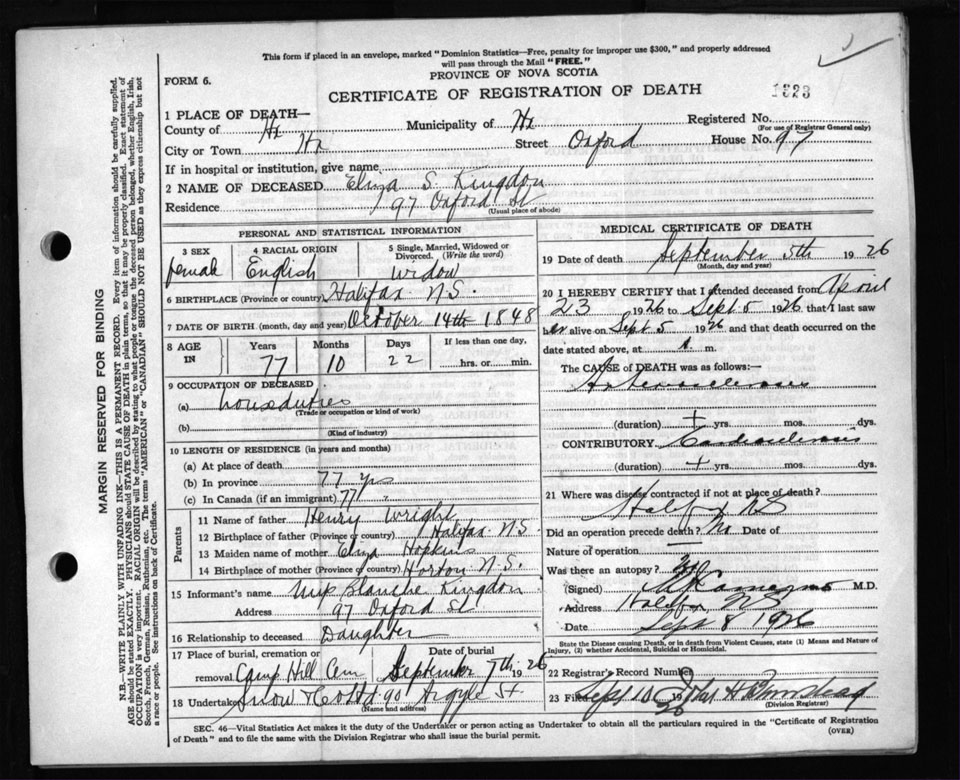 This form if placed in an envelope, marked "Dominion Statistics—Free, penalty for improper use $300," and properly addressed
will pass through the Mail "FREE."
PROVINCE OF NOVA SCOTIA
FORM 6.
CERTIFICATE OF REGISTRATION OF DEATH
1 PLACE OF DEATH—
Registered No.
(For use of Registrar General only)
County of Hx Municipality of Hx
City or Town Hx Street Oxford House No. 97
If in hospital or institution, give name
2 NAME OF DECEASED Eliza S. Kingdon
Residence 97 Oxford St
(Usual place of abode)
PERSONAL AND STATISTICAL INFORMATION
3 SEX female
4 RACIAL ORIGIN English
5 Single, Married, Widowed or
Divorced. (Write the word)
widow
6 BIRTHPLACE (Province or country) Halifax N.S.
7 DATE OF BIRTH (month, day and year) October 14th 1848
8 AGE IN Years 77 Months 10 Days 22 If less than one day,
hrs. or min.
9 OCCUPATION OF DECEASED
(a) houseduties
(Trade or occupation or kind of work)
(b)
(Kind of industry)
10 LENGTH OF RESIDENCE (in years and months)
(a) At place of death
(b) In province 77 yrs
(c) In Canada (if an immigrant) 77 "
Parents
11 Name of father Henry Wright
12 Birthplace of father (Province or country) Halifax N.S.
13 Maiden name of mother Eliza Hopkins
14 Birthplace of mother (Province or country) Horton N.S.
15 Informant's name Miss Blanche Kingdon
Address 97 Oxford St
16 Relationship to deceased Daughter
17 Place of burial, cremation or removal Camp Hill Cem
Date of burial September 7th 26
18 Undertaker Snow & Co Ltd 90 Argyle St
(Name and address)
MEDICAL CERTIFICATE OF DEATH
19 Date of death September 5th 1926
(Month, day and year)
20 I HEREBY CERTIFY that I attended deceased from April
23 1926 to Sept 5 1926 that I last saw
her alive on Sept 5 1926 and that death occurred on the
date stated above, at m.
The CAUSE OF DEATH was as follows:—
Arteriosclerosis
(duration) + yrs. mos. dys.
CONTRIBUTORY Cardiosclerosis
(duration) + yrs. mos. dys.
21 Where was disease contracted if not at place of death?
Halifax NS
Did an operation precede death? No Date of
Nature of operation —
Was there an autopsy?
(Signed) M.D.
Address Halifax NS
Date Sept 8 1926
State the Disease causing Death, or in death from Violent Causes, state (1) Means and Nature of
Injury, (2) whether Accidental, Suicidal or Homicidal.
22 Registrar's Record Number
23 Filed Sept 10 1926
(Division Registrar)
SEC. 46—Vital Statistics Act makes it the duty of the Undertaker or person acting as Undertaker to obtain all the particulars required in the "Certificate of Registration
of Death" and to file the same with the Division Registrar who shall issue the burial permit.
(OVER)
MARGIN RESERVED FOR BINDING
N.B.—WRITE PLAINLY WITH UNFADING INK—THIS IS A PERMANENT RECORD. Every item of information should be carefully supplied.
AGE should be stated EXACTLY. PHYSICIANS should STATE CAUSE OF DEATH in plain terms, so that it may be properly classified. Exact statement of
OCCUPATION is very important. RACIAL ORIGIN will be described by stating to what people or tongue the deceased person belonged, whether English, Irish,
Scotch, French, German, Russian, Ruthenian, etc. The terms "AMERICAN" or "CANADIAN" SHOULD NOT BE USED as they express citizenship but not
a race or people. See instructions on back of Certificate.